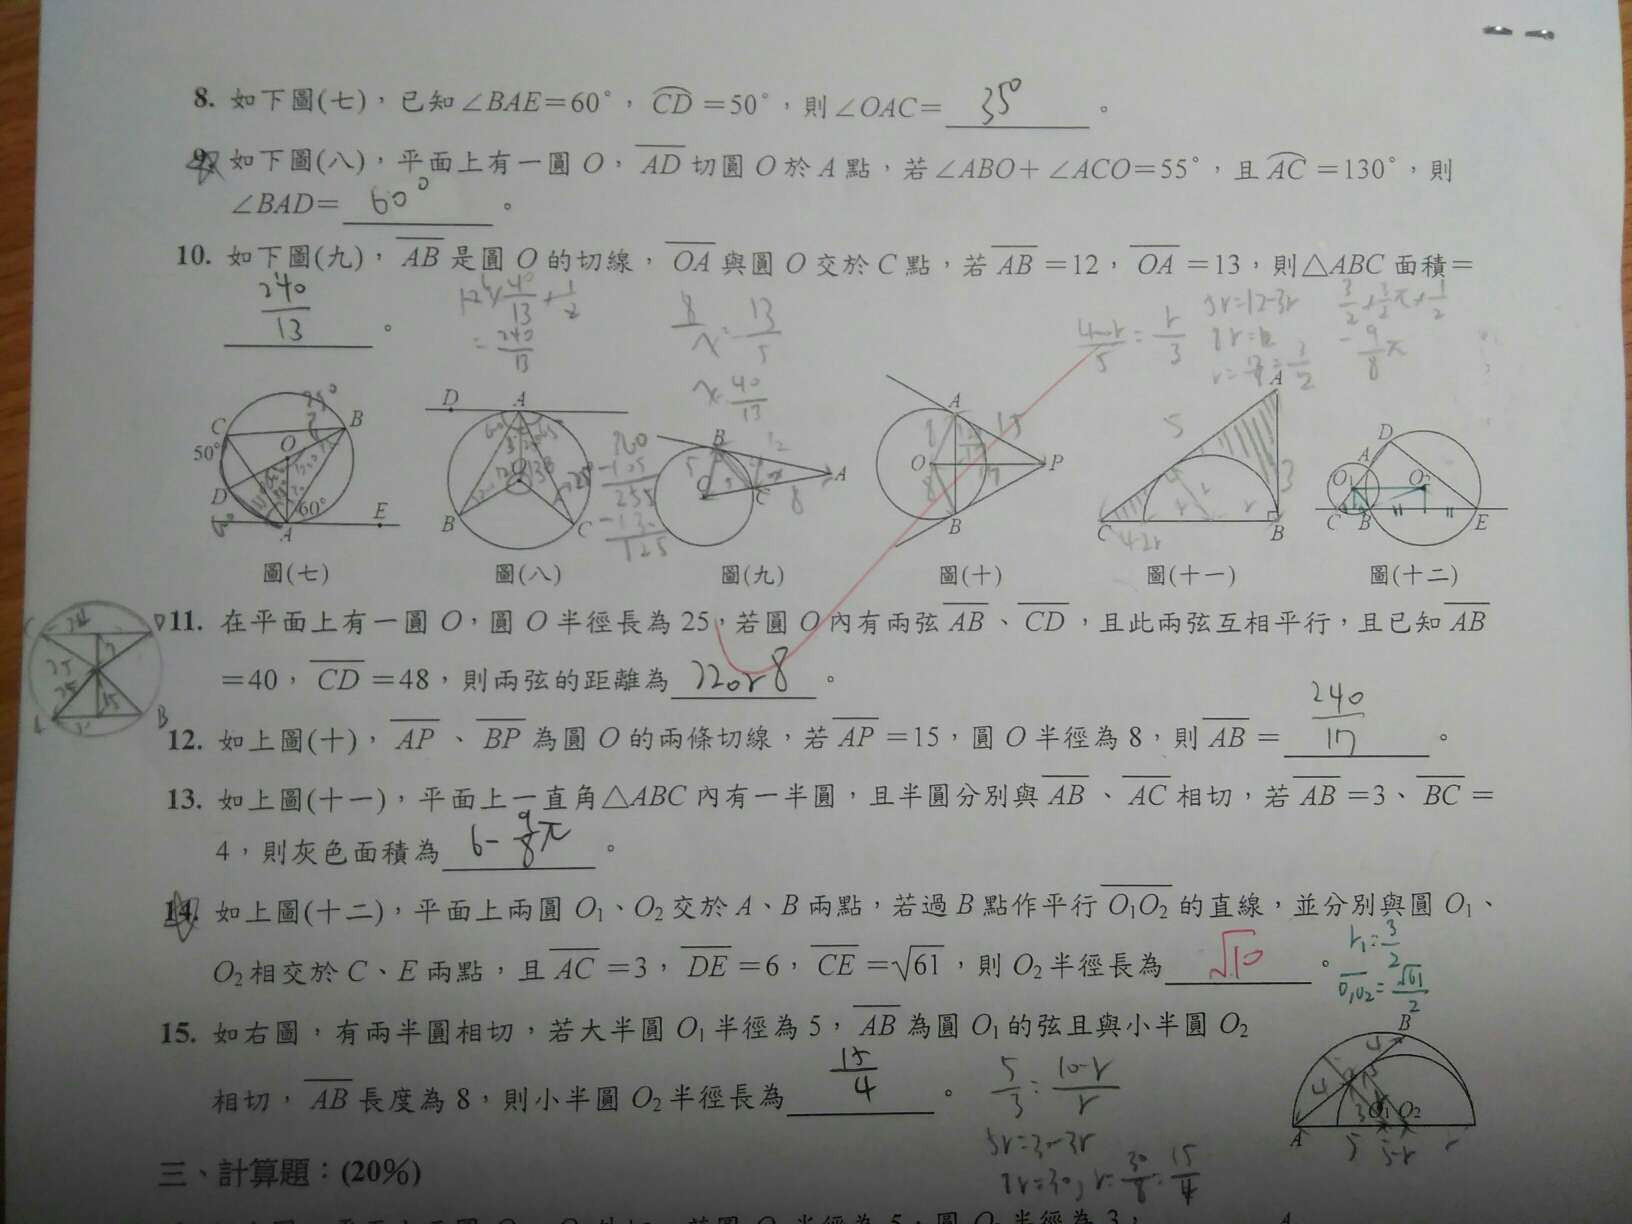 8. 如下圖(七)，已知∠BAE=60°，CD=50°，則∠OAC= 35° 。
9. 如下圖(八)，平面上有一圓 O，AD 切圓 O 於 A 點，若∠ABO+∠ACO=55°，且 AC=130°，則
∠BAD= 60° 。
10. 如下圖(九)，AB 是圓 O 的切線，OA 與圓 O 交於 C 點，若 AB=12，OA=13，則△ABC 面積=
240/13 。
8/x=13/5
x=40/13
=240/13
4-r/5=r/3
5r=12-3r
-9/8π
C B O D A E 50° 60°
D A O B C
B A O C
A O P B 15 8 17
A C B 5 3 4-2r
D A O₁ O₂ C B E
260
-105
255
-130
125
圖(七) 圖(八) 圖(九) 圖(十) 圖(十一) 圖(十二)
11. 在平面上有一圓 O，圓 O 半徑長為 25，若圓 O 內有兩弦 AB、CD，且此兩弦互相平行，且已知 AB
=40，CD=48，則兩弦的距離為 22or8 。
12. 如上圖(十)，AP、BP 為圓 O 的兩條切線，若 AP=15，圓 O 半徑為 8，則 AB= 240/17 。
13. 如上圖(十一)，平面上一直角△ABC 內有一半圓，且半圓分別與 AB、AC 相切，若 AB=3、BC=
4，則灰色面積為 6-9/8π 。
14. 如上圖(十二)，平面上兩圓 O₁、O₂ 交於 A、B 兩點，若過 B 點作平行 O₁O₂ 的直線，並分別與圓 O₁、
O₂ 相交於 C、E 兩點，且 AC=3，DE=6，CE=√61，則 O₂ 半徑長為 √10 。
r₁=3/2
O₁O₂=√61/2
15. 如右圖，有兩半圓相切，若大半圓 O₁ 半徑為 5，AB 為圓 O₁ 的弦且與小半圓 O₂
相切，AB 長度為 8，則小半圓 O₂ 半徑長為 15/4 。
5/3=10-r/r
5r=30-3r
8r=30, r=30/8=15/4
B 4 4 3 O₁ O₂ A 5 5-r r
三、計算題：(20%)